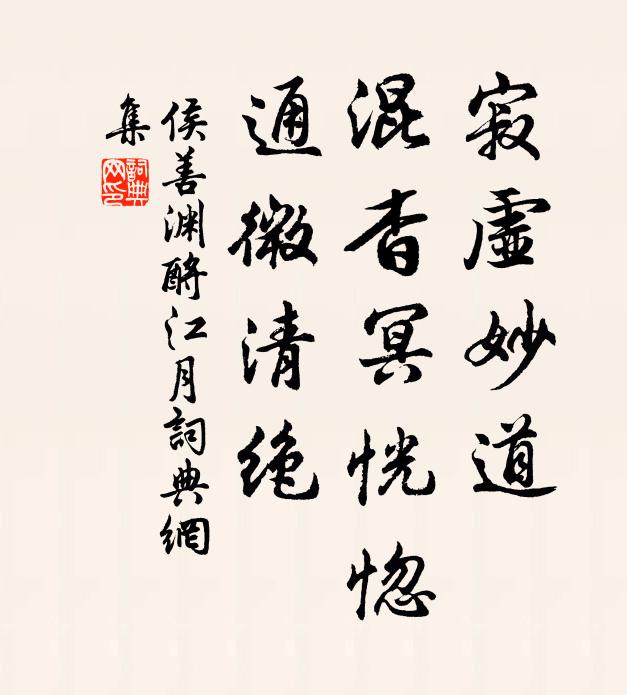 寂虛妙道
混杳冥恍惚
通微清絕
侯善淵酹江月詞典網
集
詞典
网印